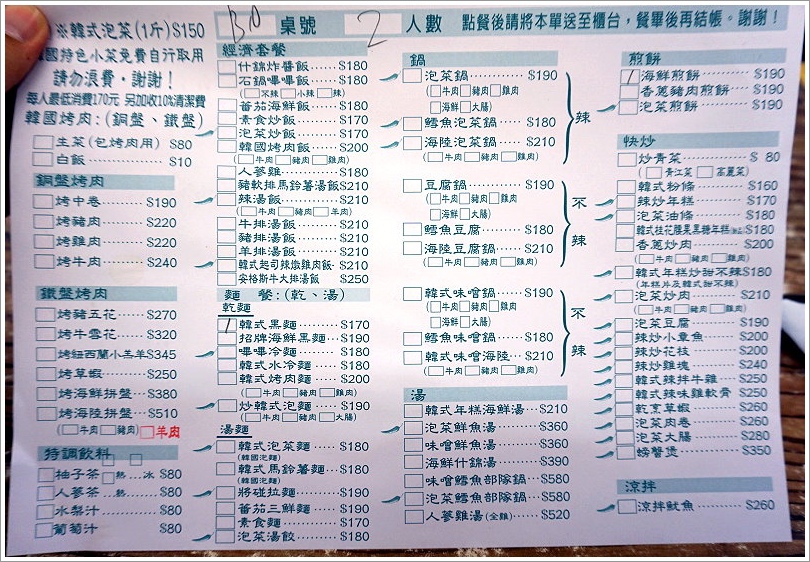 ※韓式泡菜(1斤)$150
國特色小菜免費自行取用
請勿浪費‧謝謝！
每人最低消費170元 另加收10%清潔費
韓國烤肉：(銅盤、鐵盤)
生菜(包烤肉用) $80
白飯 $10
銅盤烤肉
烤中卷 $190
烤豬肉 $220
烤雞肉 $220
烤牛肉 $240
鐵盤烤肉
烤豬五花 $270
烤牛雪花 $320
烤紐西蘭小羔羊$345
烤草蝦 $250
烤海鮮拼盤 $380
烤海陸拼盤 $510
(牛肉 豬肉) 羊肉
特調飲料
柚子茶 熱...冰 $80
人蔘茶...熱 $80
水梨汁 $80
葡萄汁 $80
桌號 2 人數 點餐後請將本單送至櫃台，餐畢後再結帳。謝謝！
經濟套餐
什錦炸醬飯 $180
石鍋嗶嗶飯 $180
(不辣 小辣 辣)
蕃茄海鮮飯 $180
素食炒飯 $170
泡菜炒飯 $170
韓國烤肉飯 $200
(牛肉 豬肉 雞肉)
人蔘雞 $180
豬軟排馬鈴薯湯飯$210
辣湯飯 $210
(牛肉 豬肉 羊肉)
牛排湯飯 $210
豬排湯飯 $210
羊排湯飯 $210
韓式起司辣燉雞肉飯 $210
安格斯牛大排湯飯 $250
麵 餐：(乾、湯)
乾麵
韓式黑麵 $170
招牌海鮮黑麵 $190
嗶嗶冷麵 $180
韓式水冷麵 $180
韓式烤肉麵 $200
(牛肉 豬肉 雞肉)
炒韓式泡麵 $190
(牛肉 豬肉 大腸)
湯麵
韓式泡菜麵 $180
(韓國泡麵)
韓式馬鈴薯麵 $180
(韓國泡麵)
將碰拉麵 $190
蕃茄三鮮麵 $190
素食麵 $170
泡菜湯餃 $180
鍋
泡菜鍋 $190
(牛肉 豬肉 雞肉
海鮮 大腸)
鱈魚泡菜鍋 $180
海陸泡菜鍋 $210
(牛肉 豬肉 雞肉)
辣
豆腐鍋 $190
(牛肉 豬肉 雞肉
海鮮 大腸)
鱈魚豆腐 $180
海陸豆腐鍋 $210
(牛肉 豬肉 雞肉)
不辣
韓式味噌鍋 $190
(牛肉 豬肉 雞肉
海鮮 大腸)
鱈魚味噌鍋 $180
韓式味噌海陸 $210
(牛肉 豬肉 雞肉)
不辣
湯
韓式年糕海鮮湯 $210
泡菜鮮魚湯 $360
味噌鮮魚湯 $360
海鮮什錦湯 $390
味噌鱈魚部隊鍋 $580
泡菜鱈魚部隊鍋 $580
人蔘雞湯(全雞) $520
煎餅
海鮮煎餅 $190
香蔥豬肉煎餅 $190
泡菜煎餅 $190
快炒
炒青菜 $ 80
(青江菜 高麗菜)
韓式粉條 $160
辣炒年糕 $170
泡菜油條 $180
韓式桂花腰果黑糖年糕 $180
香蔥炒肉 $200
(牛肉 豬肉 雞肉)
韓式年糕炒甜不辣$180
(年糕片及韓式甜不辣)
泡菜炒肉 $210
(牛肉 豬肉 雞肉)
泡菜豆腐 $190
辣炒小章魚 $200
辣炒花枝 $200
辣炒雞塊 $240
韓式辣拌牛雜 $250
韓式辣味雞軟骨 $250
乾烹草蝦 $260
泡菜肉卷 $260
泡菜大腸 $280
螃蟹煲 $350
涼拌
涼拌魷魚 $260